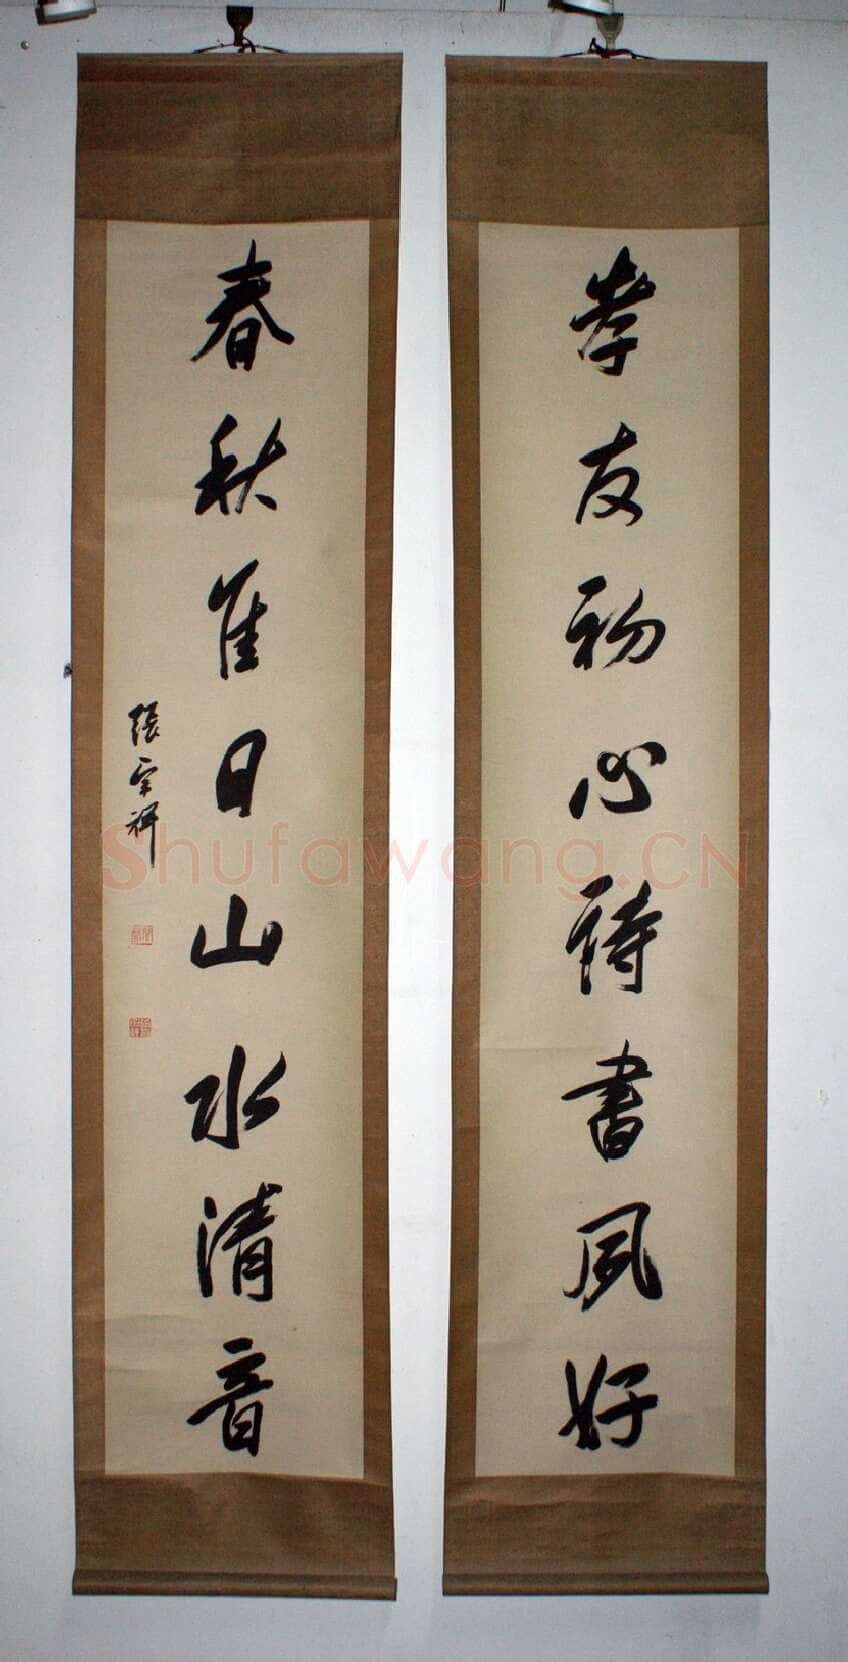 孝友初心詩書夙好
春秋隹日山水清音
張宗祥
Shufawang.CN